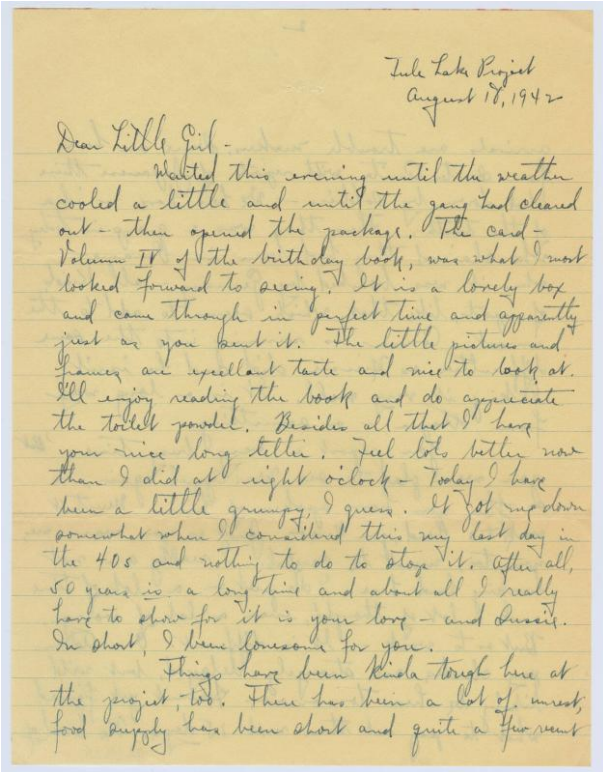 Tule Lake Project
August 18, 1942
Dear Little Girl -
Waited this evening until the weather
cooled a little and until the gang had cleared
out - then opened the package. The card -
Volumn IV of the birthday book, was what I most
looked forward to seeing. It is a lovely box
and came through in perfect time and apparently
just as you sent it. The little pictures and
frames are excellant taste and nice to look at.
I'll enjoy reading the book and do appreciate
the toilet powder. Besides all that I have
your nice long letter. Feel lots better now
than I did at eight o'clock - Today I have
been a little grumpy, I guess. It got me down
somewhat when I considered this my last day in
the 40s and nothing to do to stop it. After all,
50 years is a long time and about all I really
have to show for it is your love - and Sussie.
In short, I been lonesome for you.
Things have been kinda tough here at
the project, too. There has been a lot of unrest,
food supply has been short and quite a few